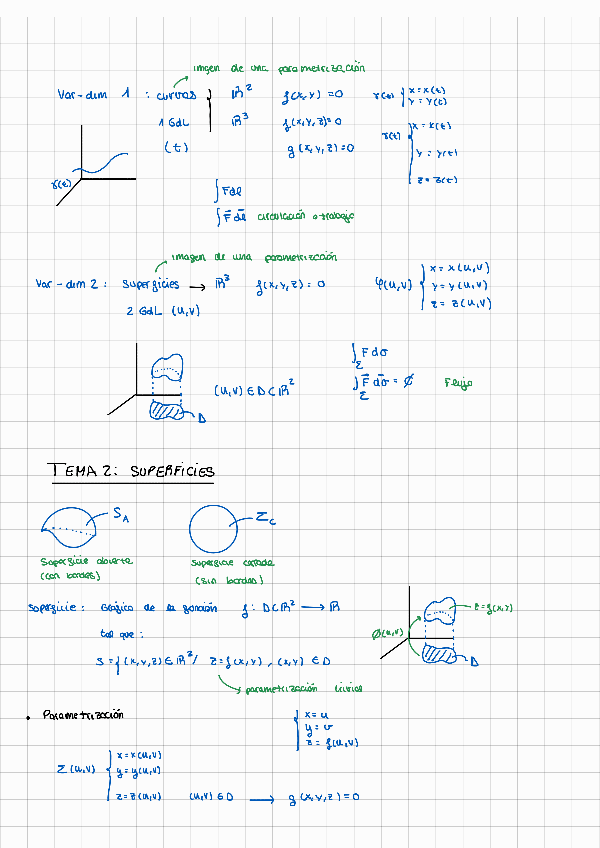 imagen de una parametrización
Var-dim 1 : curvas ℝ² f(x,y) = 0 γ(t) { x = x(t) y = y(t)
1 GdL ℝ³ f(x,y,z) = 0 γ(t) { x = x(t)
(t) g(x,y,z) = 0 y = y(t)
z = z(t)
γ(t)
∫ F dl
∫ F̄ dl̄ circulación o trabajo
imagen de una parametrización
Var-dim 2 : superficies → ℝ³ f(x,y,z) = 0 φ(u,v) { x = x(u,v)
y = y(u,v)
2 GdL (u,v) z = z(u,v)
∫_Σ F dσ
(u,v) ∈ D ⊂ ℝ² ∫_Σ F̄ dσ̄ = ϕ Flujo
D
TEMA 2: SUPERFICIES
S_A Σ_C
Superficie abierta Superficie cerrada
(con bordes) (sin bordes)
Superficie: Gráfica de la función f: D ⊂ ℝ² → ℝ z = f(x,y)
tal que: Φ(u,v)
S = { (x,y,z) ∈ ℝ² / z = f(x,y), (x,y) ∈ D D
parametrización trivial
• Parametrización { x = u
y = v
z = f(u,v)
Σ(u,v) { x = x(u,v)
y = y(u,v)
z = z(u,v) (u,v) ∈ D → g(x,y,z) = 0